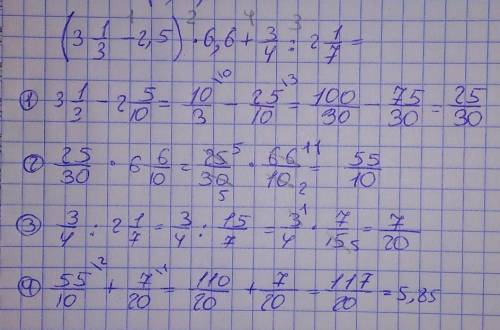 1 2 4 3
(3 1/3 - 2,5) · 6,6 + 3/4 : 2 1/7 =
① 3 1/3 - 2 5/10 = 10/3 \10 - 25/10 \3 = 100/30 - 75/30 = 25/30
② 25/30 · 6 6/10 = 25 5/30 5 · 66 11/10 2 = 55/10
③ 3/4 : 2 1/7 = 3/4 : 15/7 = 3 1/4 · 7/15 5 = 7/20
④ 55/10 \2 + 7/20 \1 = 110/20 + 7/20 = 117/20 = 5,85